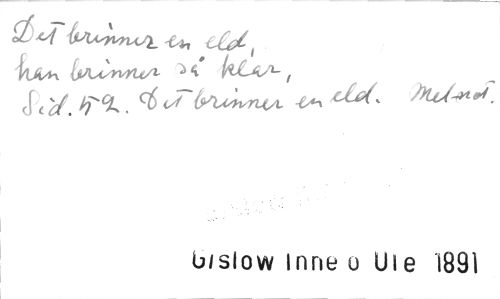 Det brinner en eld,
han brinner så klar,
Sid. 52. Det brinner en eld. Mel-not.
Gislow Inne o Ute 1891